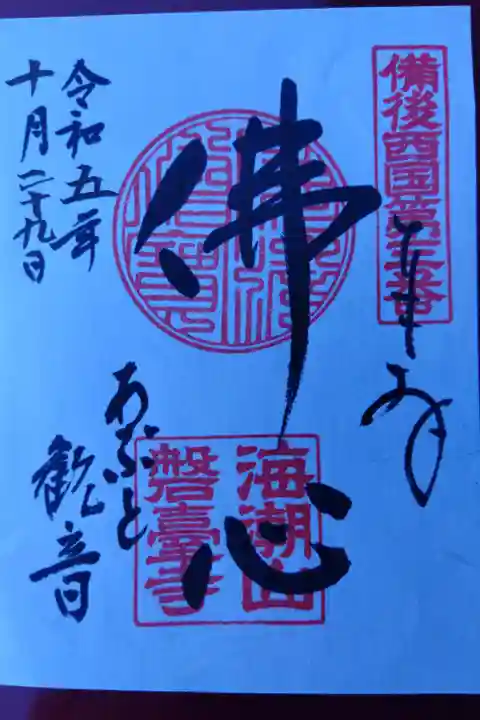 備後西国第三番
佛心
海潮山
磐臺寺
あぶと
観音
令和五年
十月二十九日